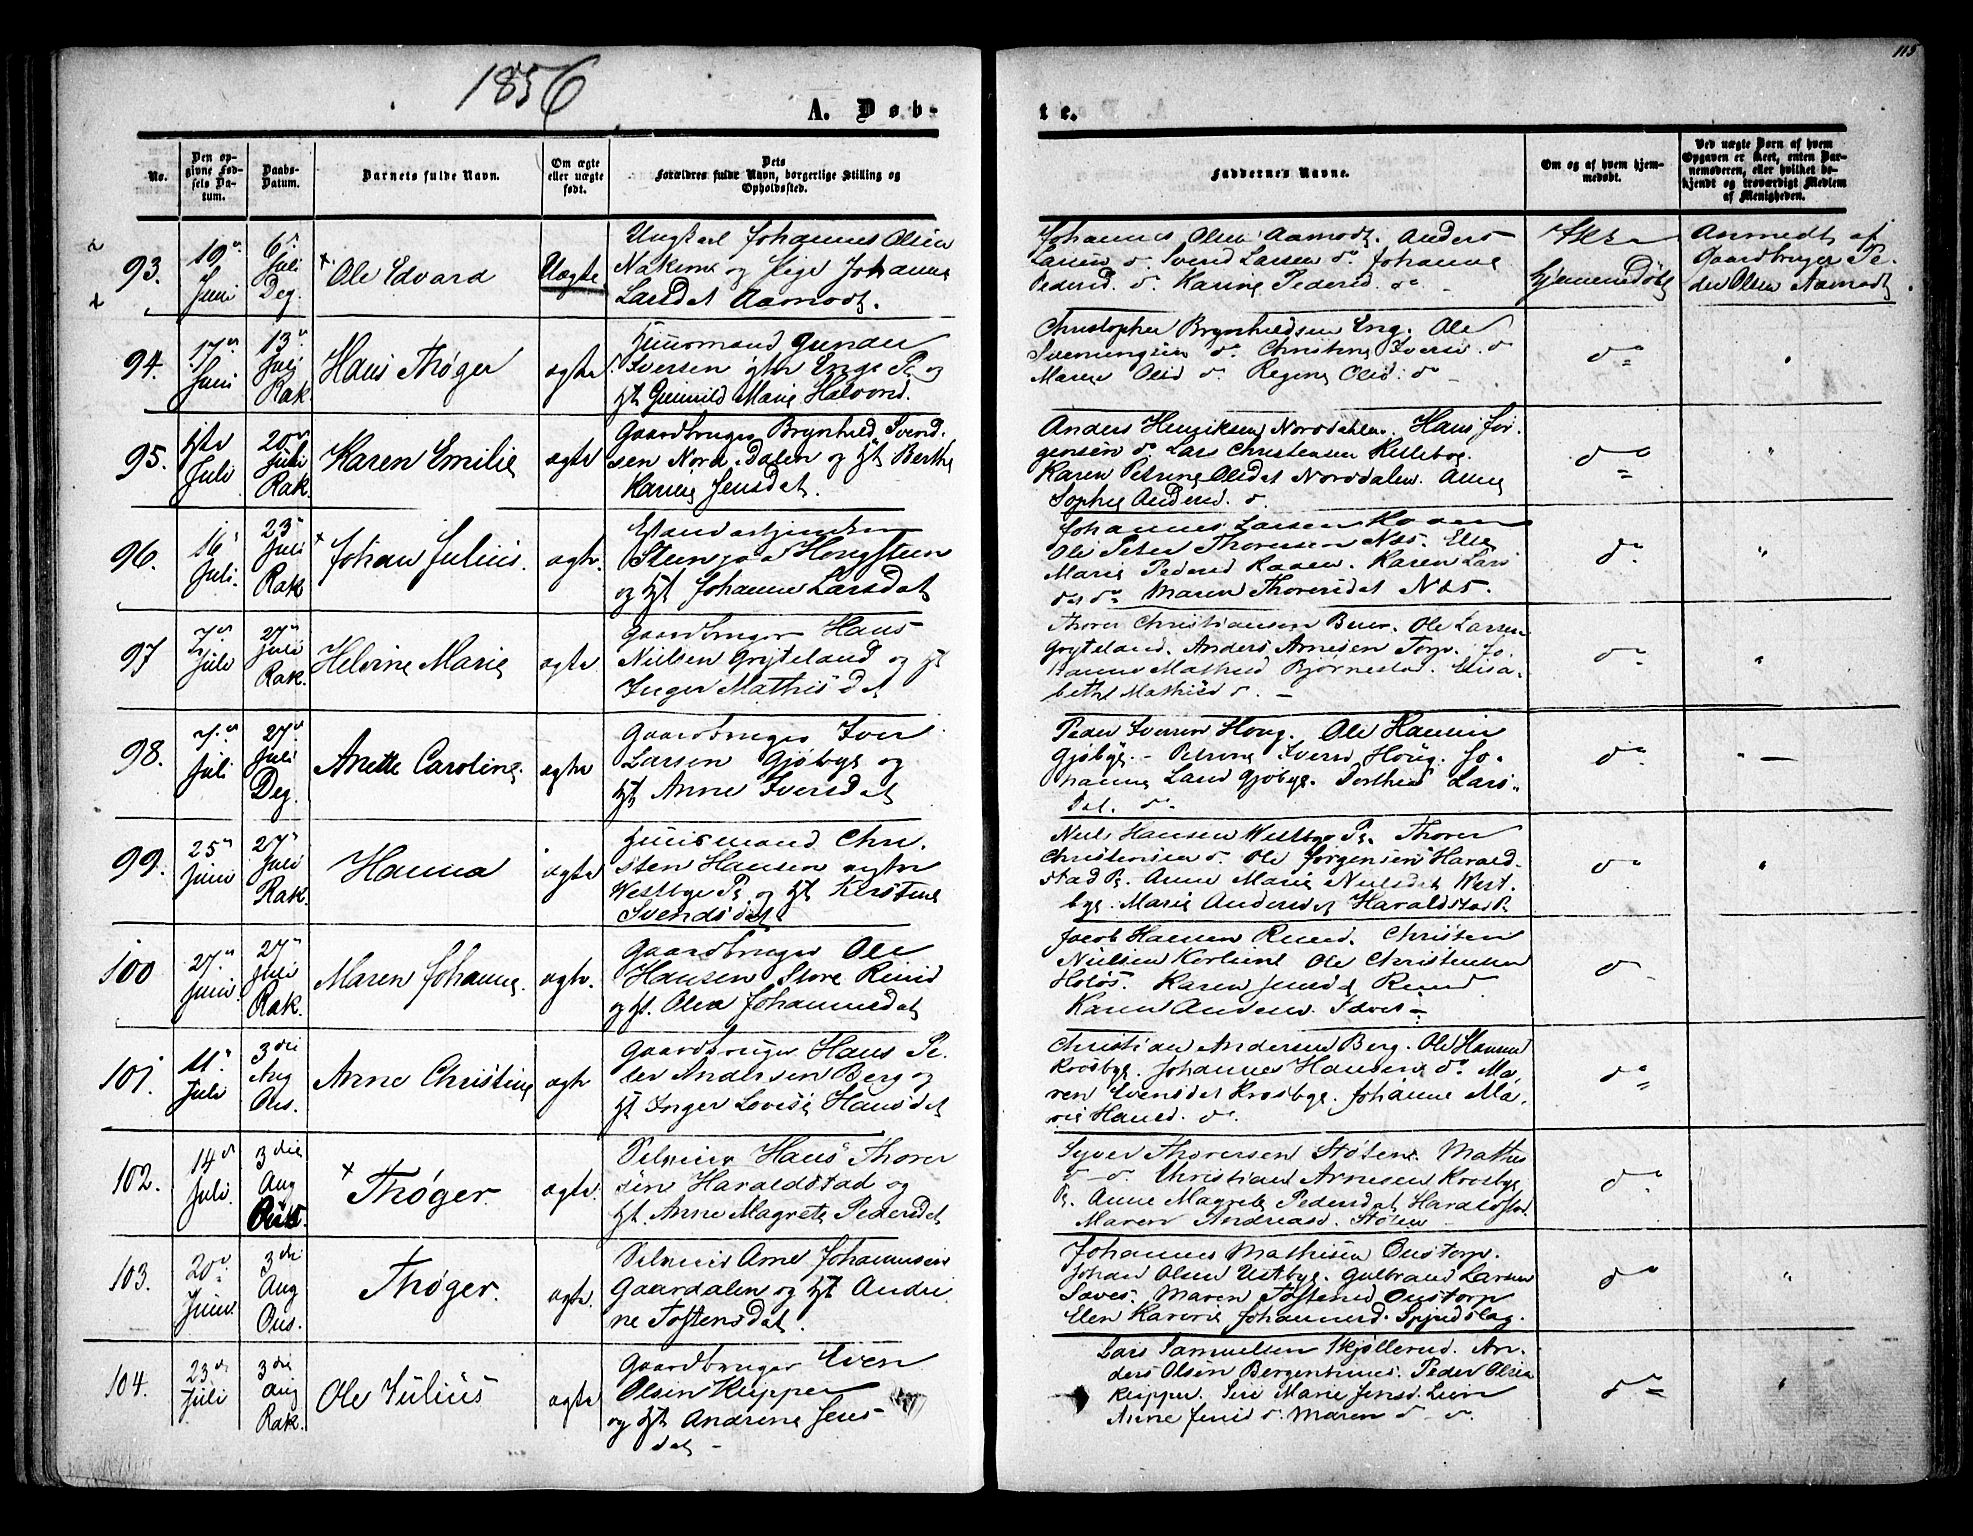 1856
115
A. Døb-
te.
No.
Den op-
givne Fød-
sels Da-
tum.
Daabs-
Datum.
Barnets fulde Navn.
Om ægte
eller uægte
født.
Dets
Forældres fulde Navn, borgerlige Stilling og
Opholdssted.
Faddernes Navne.
Om og af hvem hjem-
medøbt.
Ved uægte Børn af hvem
Opgaven er skeet, enten Bar-
nemoderen, eller hvilket be-
kjendt og troværdigt Medlem
af Menigheden.
93.
19
Juni
6
Juli
Deg.
Ole Edvard
Uægte
Ungkarl Johannes Olsen
og Pige Johanne
Larsdat Aamodt.
Johannes Olsen Aamodt. Anders
Larsen do. Svend Larsen do. Johanne
Pedersd. do. Karine Pedersd. do
Ikke
hjemmedøbt
Anmeldt af
Gaardbruger Pe-
der Olsen Aamodt
94.
17
Juni
13
Juli
Rak.
Hans Thøger
ægte
Huusmand Gunder
Iversen Enge Pe og
Ht Gunnild Marie Halvord.
Christopher Brynhildsen Eng. Ole
Svenningsen do. Christine Iversd. do
Maren Olsd do. Regine Olsd. do
do
"
95.
Juli
20
Juli
Rak.
Karen Emilie
ægte
Gaardbruger Brynhild Svend-
sen Nord-Dalen og Ht Berthe
Karine Jensdat.
Anders Henriksen Norddalen. Hans Jør-
gensen do. Lars Christensen Killebog.
Karen Petrine Olsdat Norddalen. Anne
Sophie Andersd. do
do
"
96.
16
Juli.
23
Juli
Rak
Johan Julius.
ægte.
Steen Hougsteen
og Ht Johanne Larsdat
Johannes Larsen Kaaen
Ole Peter Thoresen Næs. Else
Marie Pedersd Kaaen. Karen Lars
dat do Maren Thoresdat Næs.
do.
"
97
7
Juli
27
Juli
Rak.
Helvine Marie
ægte
Gaardbruger Hans
Nielsen Gryteland og Ht
Inger Mathisdat
Thorer Christiansen Buer. Ole Larsen
Gryteland. Anders Arnesen Torp. Jo-
hanne Mathisd Bjørnestad. Elisa-
beth Mathisd do.
do
"
98.
7
Juli
27
Juli
Deg.
Anette Caroline.
ægte
Gaardbruger Iver
Larsen Gjøbye og
Ht Anne Iversdat
Peder Iversen Houg. Ole Hansen
Gjøbye. Petrine Iversd Houg. Jo-
hanne Larsd Gjøbye. Dorthea Lars-
dat. do.
do
"
99.
25
Juni
27
Juli
Rak.
Hanna
ægte
Huusmand Chri-
sten Hansen
Westbye Pe og Ht Kirstine
Svendsdat
Niels Hansen Westbye Pe. Thorer
Christensen do. Ole Jørgensen Harald-
stad Pe. Anne Marie Nielsdat West-
bye. Marie Andersdat Haraldstad Pe
do
"
100
27
Juni.
27
Juli
Rak.
Maren Johanne.
ægte.
Gaardbruger Ole
Hansen Store Ruud
og Ht. Olea Johannesdat
Jacob Hansen Ruud. Christen
Nielsen Ole Christensen
Holøs. Karen Jensd Ruud
Karen Andersd.
do
101.
11
Juli
3die
Aug
Ous.
Anne Christine
ægte
Gaardbruger Hans Pe-
der Andersen Berg og
Ht Inger Lovise Hansdat
Christian Andersen Berg. Ole Hansen
Krosbye. Johannes Hansen do. Ma-
ren Evensdat Krosbye. Johanne Ma-
rie Hansd. do.
do
102.
14
Juli.
3die
Aug
Ous.
Thøger.
ægte.
Hans Thorer
sen Haraldstad og
Ht Anne Magrete Pedersdat
Syver Thoresen Støten. Mathis
do do. Christian Arnesen Krosbye
Pe. Anne Magrete Pedersdat Haraldstad
Maren Andreasd. Støten
do.
103.
20
Juni
3die
Aug
Ous.
Thøger.
ægte.
Arne Johannesen
Gaardalen og Ht Andri
ne Toftensdat.
Johannes Mathisen Oustorp.
Johan Olsen Østbye. Gulbrand Larsen
Maren Toftensd Oustorp
Elen Karine Johannesd.
do
"
104.
23
Juli
3die
Aug
Rak.
Ole Julius
ægte
Gaardbruger Even
Olsen Klipper
og Ht Andrine Jens-
dat
Lars Samuelsen Skjøllerud. An-
ders Olsen Peder Olsen
Klipper. Siri Marie Jensd.
Anne Jensd do. Maren do do.
do
"